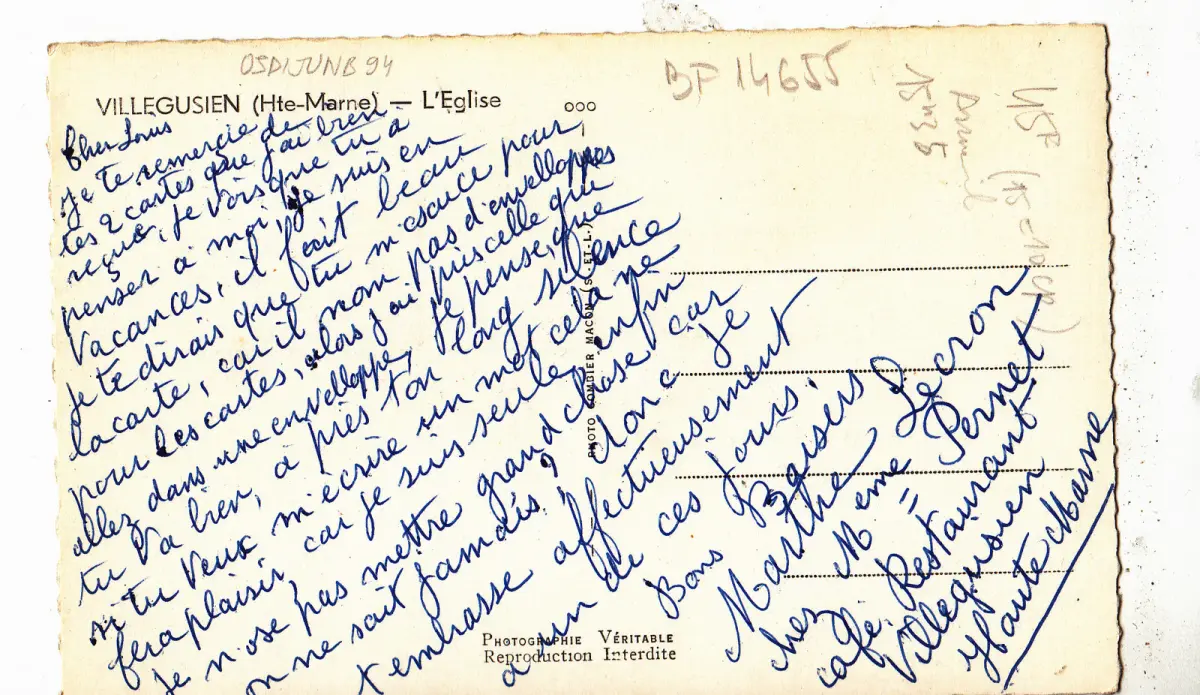 OSDIJUNB 94
BF 14655
VILLEGUSIEN (Hte-Marne) — L'Eglise
ooo
Cher Louis
Je te remercie de
tes 2 cartes que j'ai bien
reçue, je vois que tu a
penser à moi, je suis en
Vacances, il fait beau
je te dirais que tu m'excuse pour
la carte, car il non pas d'enveloppes
pour les cartes, alors j'ai puis celle que
allez dans une enveloppe, je pense, que
tu Va bien, à près ton long silence
si tu Veux m'écrire un mot cela me
fera plaisir, car je suis seule, enfin
Je n'ose pas mettre grand chose car
on ne sait jamais, donc Je
t'embrasse affectueusement
a un de ces jours.
Bons Baisers
Marthe Lecron
chez Meme Pernet
café. Restaurant
Villegusien
Haute Marne
PHOTO COMBIER MACON (S.-ET-L.)
Photographie Véritable
Reproduction Interdite